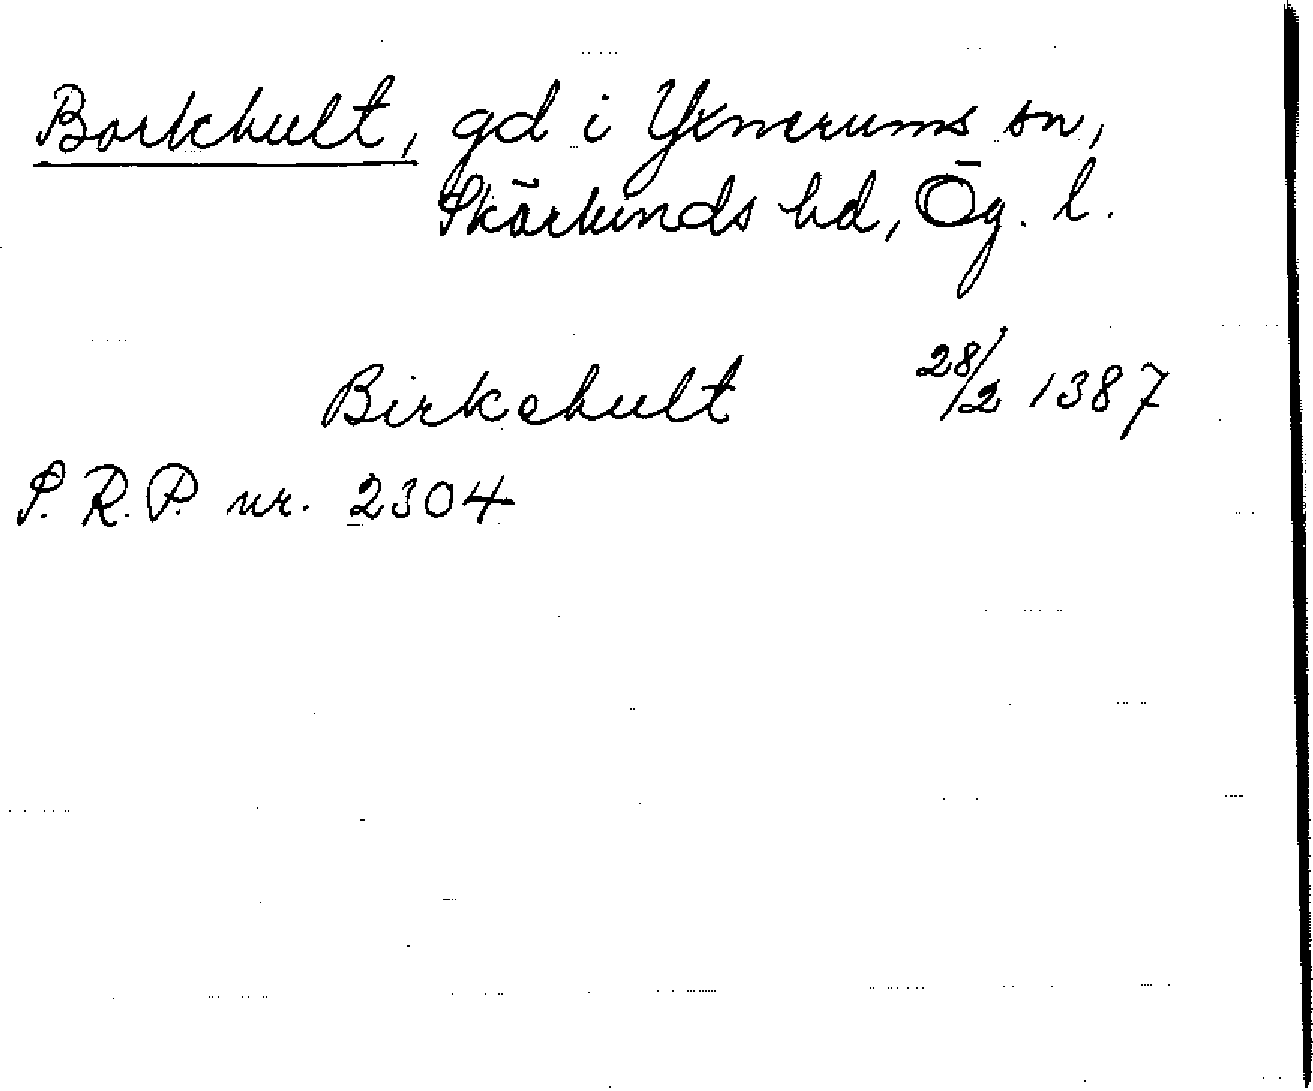 Borkhult, gd i Yxnerums sn,
Skärkinds hd, Ög. l.
Birkehult 28/2 1387
S. R. P. nr. 2304